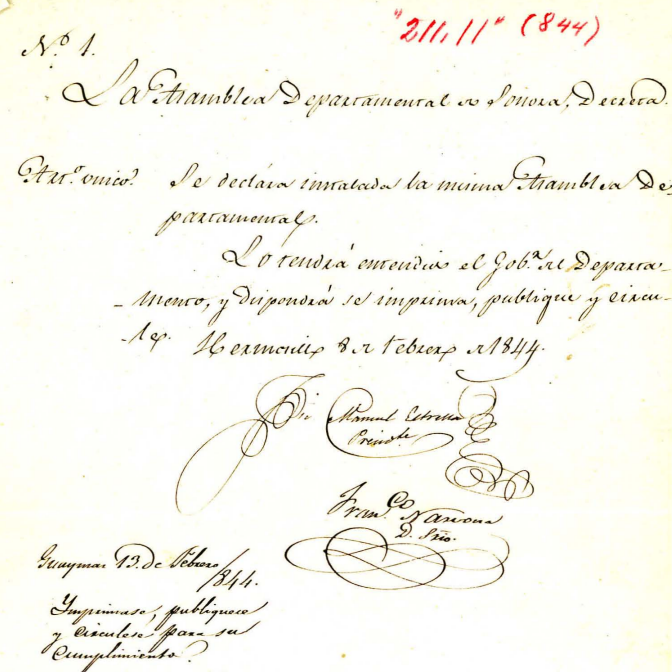 "211.11" (844)
N.º 1.
La Asamblea Departamental de Sonora, Decreta.
Art.º unico. Se declára instalada la misma Asamblea De-
partamental.
Lo tendrá entendido el Gob.º del Departa-
-mento, y dispondrá se imprima, publique y circu-
-le. Hermosillo 8 de Febrero de 1844.
Manuel Estrella
Presid.te
Fran.co Narvona
D. Srio.
Guaymas 13. de Febrero/
/844.
Ymprimase, publiquece
y circulese para su
Cumplimiento.